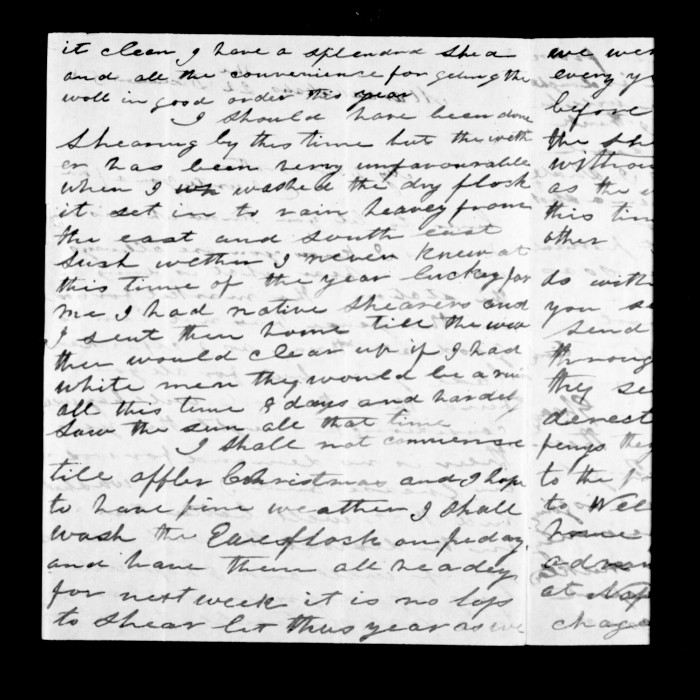 it clean I have a splended shed
and all the convenience for geting the
wooll in good order this year
I should have been done
Shearing by this time but the weth
er has been very unfavourable
when I wh washed the dry flock
it set in to rain heavey from
the east and south east
Sush wether I never knew at
this time of the year luckey for
me I had native shearers and
I sent them home till the wea
ther would clear up if I had
white men they would be
all this time 8 days and hardely
Saw the sun all that time
I shall not commense
till affter Christmas and I hope
to have fine weather I shall
wash the Ewes flock on friday
and have them all readey
for next week it is no
to shear let thus year as we
we wer
every y
before
the she
withou
as the
this tim
other
do with
you se
send
throug
they se
derest
they
to the
to Well
home
at Nap